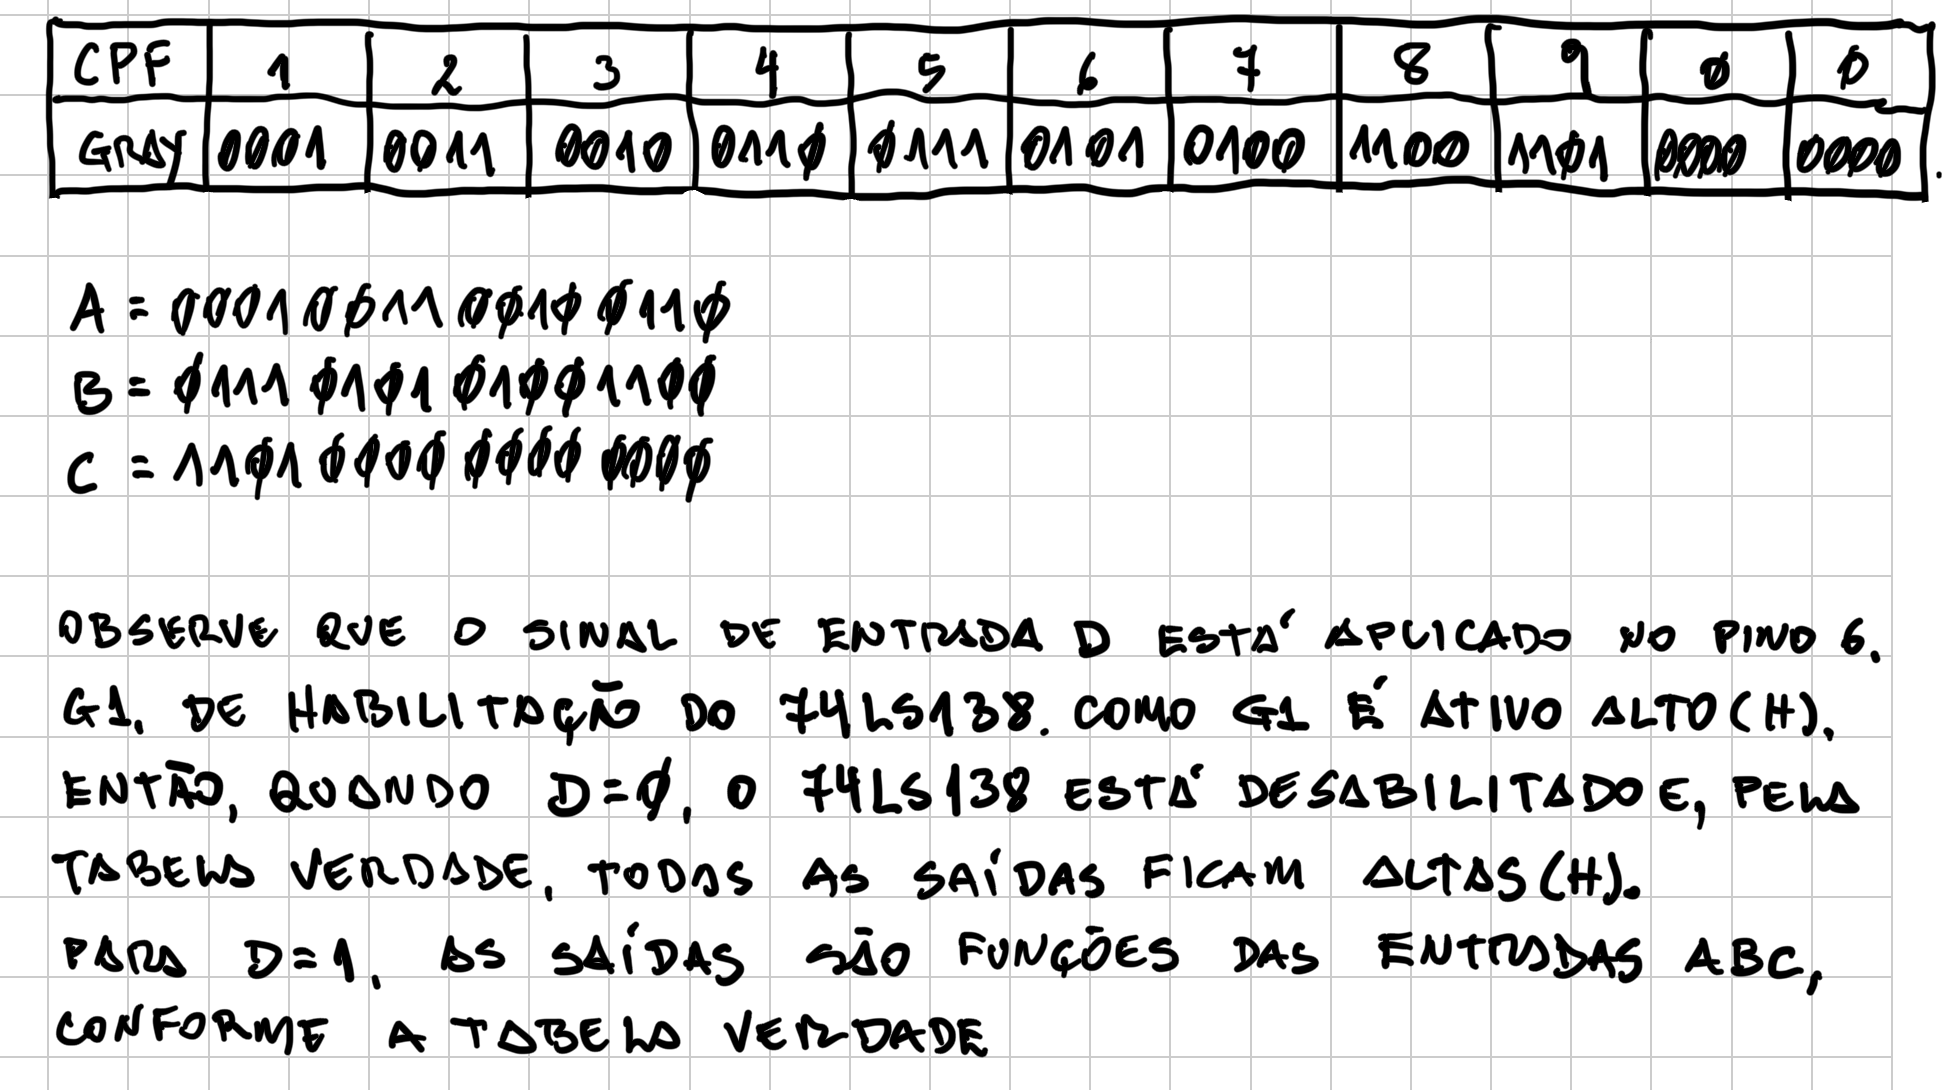 CPF 1 2 3 4 5 6 7 8 9 0 0
GRAY 0001 0011 0010 0110 0111 0101 0100 1100 1101 0000 0000
A = 0001 0011 0010 0110
B = 0111 0101 0100 1100
C = 1101 0000 0000 0000
OBSERVE QUE O SINAL DE ENTRADA D ESTÁ APLICADO NO PINO 6.
G1, DE HABILITAÇÃO DO 74LS138. COMO G1 É ATIVO ALTO(H),
ENTÃO, QUANDO D=0, O 74LS138 ESTÁ DESABILITADO E, PELA
TABELA VERDADE, TODAS AS SAÍDAS FICAM ALTAS(H).
PARA D=1, AS SAÍDAS SÃO FUNÇÕES DAS ENTRADAS ABC,
CONFORME A TABELA VERDADE